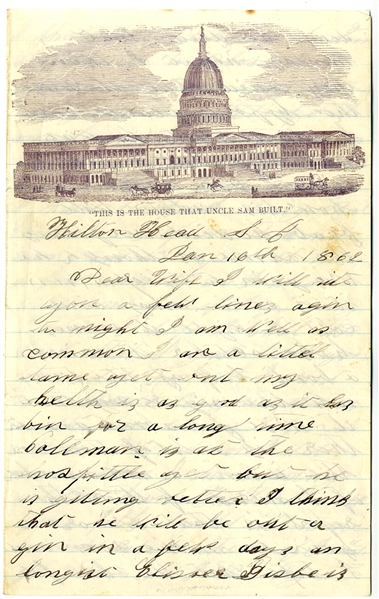 "THIS IS THE HOUSE THAT UNCLE SAM BUILT."
Hilton Head S C
Jan 10th 1862
Dear Wife I will
you a few lines agin
to night I am well as
common I am a little
lame yet but my
helth is as good as it has
bin for a long time
collman is at the
hospittle yet but he
is giting better I think
that he will be out a
gin in a few days an